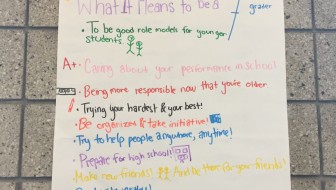 What It Means to be a
grader
• To be good role models for younger
students.
A+• Caring about your performance in school
• Being more responsible now that you're older.
• Trying your hardest & your best!
• Be organized & take initiative!
• Try to help people anywhere, anytime!
• Prepare for high school!
Make new friends! And be there for your friends!